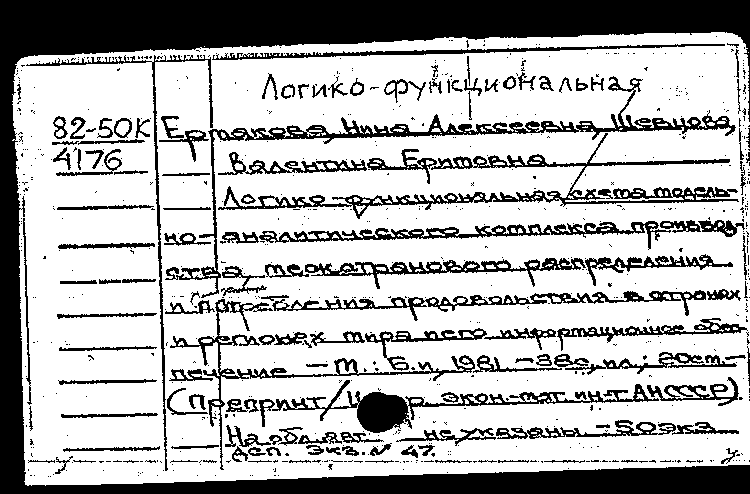 Логико-функциональная
82-50К Ермакова, Нина Алексеевна, Шевцова,
4176 Валентина Еритовна.
Логико-функциональная схема модель-
но-аналитического комплекса производ-
ства, межстранового распределения
и потребления продовольствия в странах
и регионах мира и его информационное обес-
печение – М.: Б.и, 1981 – 38с, ил; 20см.–
(Препринт/ экон.-мат. ин-т АН СССР)
На обл. авт. не указаны – 50 экз
ДСП. Экз. № 47.